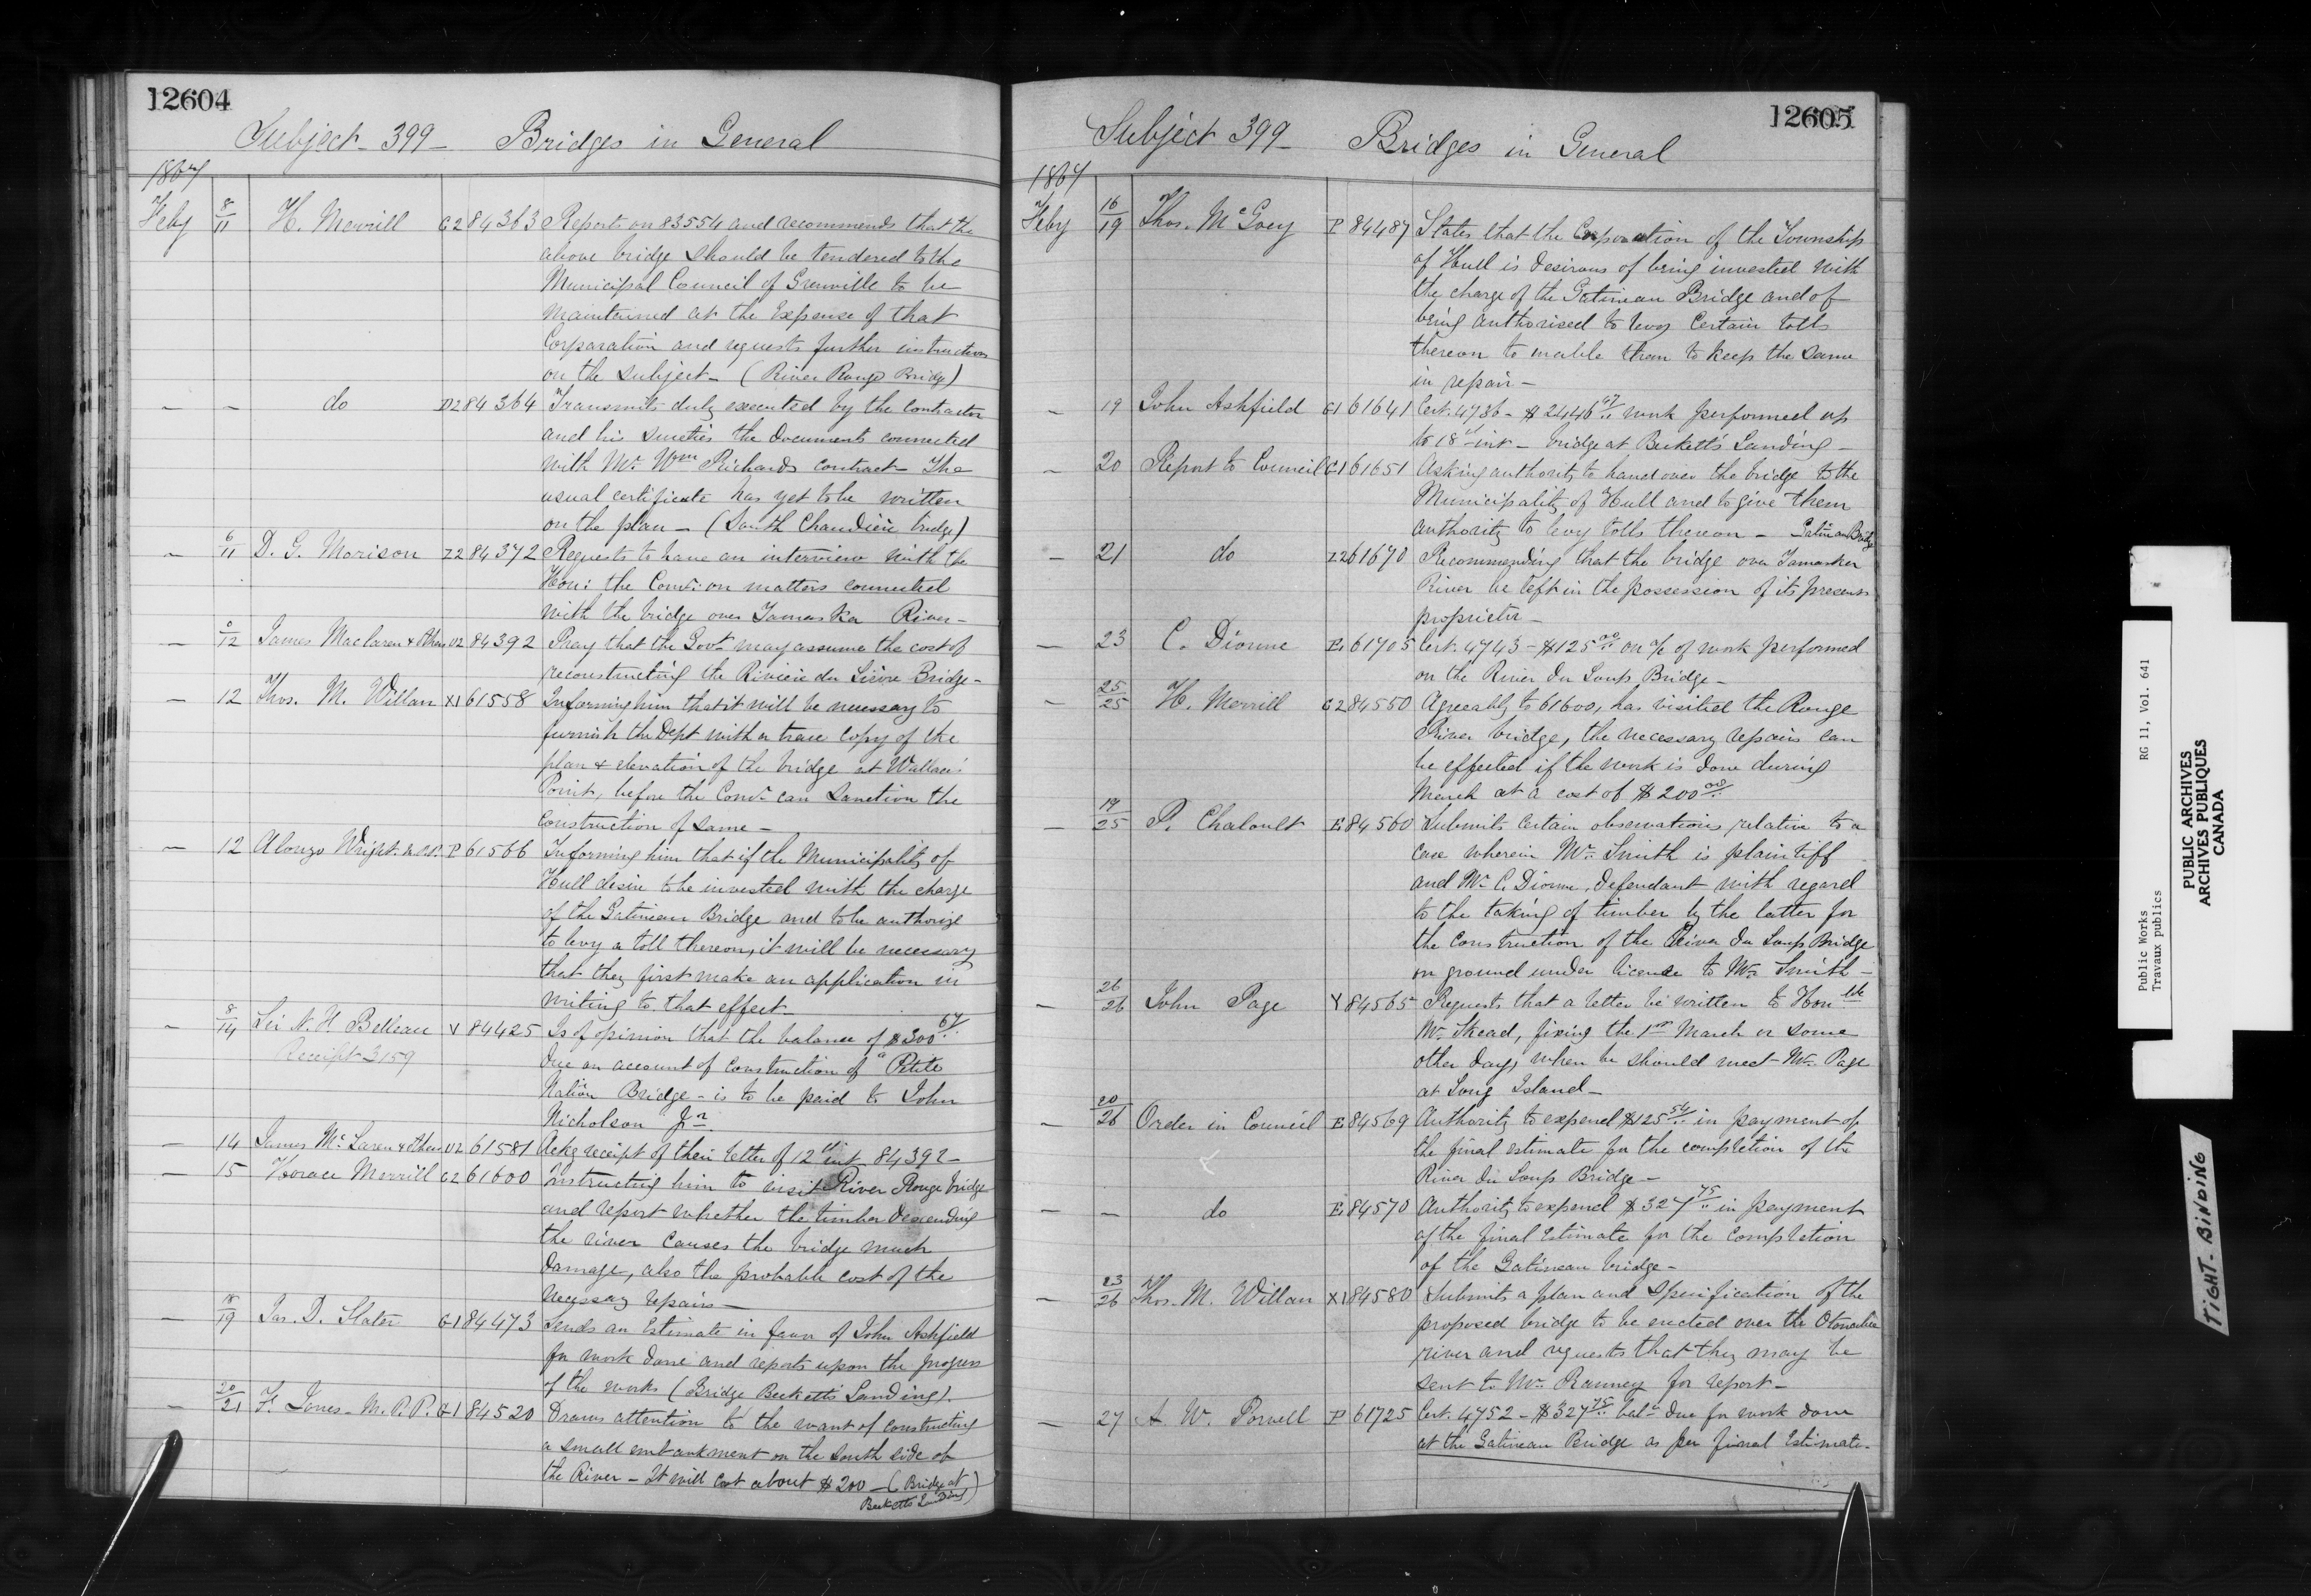 12604
Subject - 399 - Bridges in General
1867
Feby 8/11 H. Merrill G2 84363 Reports on 83554 and recommends that the
above bridge should be tendered to the
Municipal Council of Grenville to be
Maintained at the Expense of that
Corporation and requests further instructions
on the subject - (River Rouge Bridge)
- - do D2 84364 Transmits duly executed by the contractor
and his sureties the documents connected
with Mr. Wm Richards contract - The
usual certificate has yet to be written
on the plan - (South Chaudière bridge)
- 6/11 D. G. Morison Z2 84372 Requests to have an interview with the
Hon: the Comr: on matters connected
with the bridge over Yamaska River -
- /12 James Maclaren & Others U2 84392 Pray that the Govt may assume the cost of
reconstructing the Rivière du Lièvre Bridge -
- 12 Thos. M. Willan X1 61558 Informing him that it will be necessary to
furnish the Dept with a trace copy of the
plan & elevation of the bridge at Wallace's
Point, before the Comr can sanction the
Construction of same -
- 12 Alonzo Wright P 61566 Informing him that if the Municipality of
Hull desire to be invested with the charge
of the Gatineau Bridge and to be authorize
to levy a toll thereon, it will be necessary
that they first make an application in
writing to that effect -
- 8/14 Sir N. F. Belleau V 84425 Is of opinion that the balance of $300 67
Receipt 3159
due on account of construction of "Petite
Nation Bridge - is to be paid to John
Nicholson Jr.
- 14 James McLaren & Others U2 61581 Ackg receipt of their letter of 12th inst 84392 -
- 15 Horace Merrill G2 61600 Instructing him to visit River Rouge bridge
and report whether the timber descending
the river causes the bridge much
damage, also the probable cost of the
necessary repairs -
- 18/19 Jas. D. Slater G1 84473 Sends an Estimate in favor of John Ashfield
for work done and reports upon the progress
of the works (Bridge Becketts Landing).
- 20/21 F. Jones - M.P.P. G1 84520 Draws attention to the want of constructing
a small embankment on the south side of
the River - It will cost about $200 - (Bridge at
Becketts Landing)
12605
Subject 399 - Bridges in General
1867
Feby 16/19 Thos. McGoey P 84487 States that the Corporation of the Township
of Hull is desirous of being invested with
the charge of the Gatineau Bridge and of
being authorised to levy Certain tolls
thereon to enable them to keep the same
in repair -
- 19 John Ashfield G1 61641 Cert. 4736 - $2446 47 work performed up
to 18 inst - bridge at Beckett's Landing -
- 20 Report to Council G1 61651 Asking authority to hand over the bridge to the
Municipality of Hull and to give them
authority to levy tolls thereon - Gatineau Bridge
- 21 do Z2 61670 Recommending that the bridge over Yamaska
River be left in the possession of its present
proprietor -
- 23 C. Dionne E 61705 Cert. 4743 - $125 00 on a/c of work performed
on the River du Loup Bridge -
- 25/25 H. Merrill G2 84550 Agreeably to 61600, has visited the Rouge
River bridge, the necessary repairs can
be effected if the work is done during
March at a cost of $200 00
- 19/25 P. Chaloult E 84560 Submits certain observations relative to a
case wherein Mr. Smith is plaintiff
and Mr C. Dionne, defendant with regard
to the taking of timber by the latter for
the construction of the River du Loup Bridge
on ground under license to Mr. Smith -
- 26/26 John Page Y 84565 Requests that a letter be written to Honble
Mr. Skead, fixing the 1st March or some
other day, when he should meet Mr. Page
at Long Island -
- 20/26 Order in Council E 84569 Authority to expend $125 54 in payment of
the final estimate for the completion of the
River du Loup Bridge -
- - do E 84570 Authority to expend $327 75 in payment
of the final Estimate for the completion
of the Gatineau bridge -
- 23/26 Thos. M. Willan X1 84580 Submits a plan and specification of the
proposed bridge to be erected over the Otonabee
river and requests that they may be
sent to Mr. Ranney for report -
- 27 A. W. Powell P 61725 Cert. 4752 - $327 75 balce due for work done
at the Gatineau Bridge as per final Estimate.
Public Works RG 11, Vol. 641
Travaux publics
PUBLIC ARCHIVES
ARCHIVES PUBLIQUES
CANADA
TIGHT-BINDING